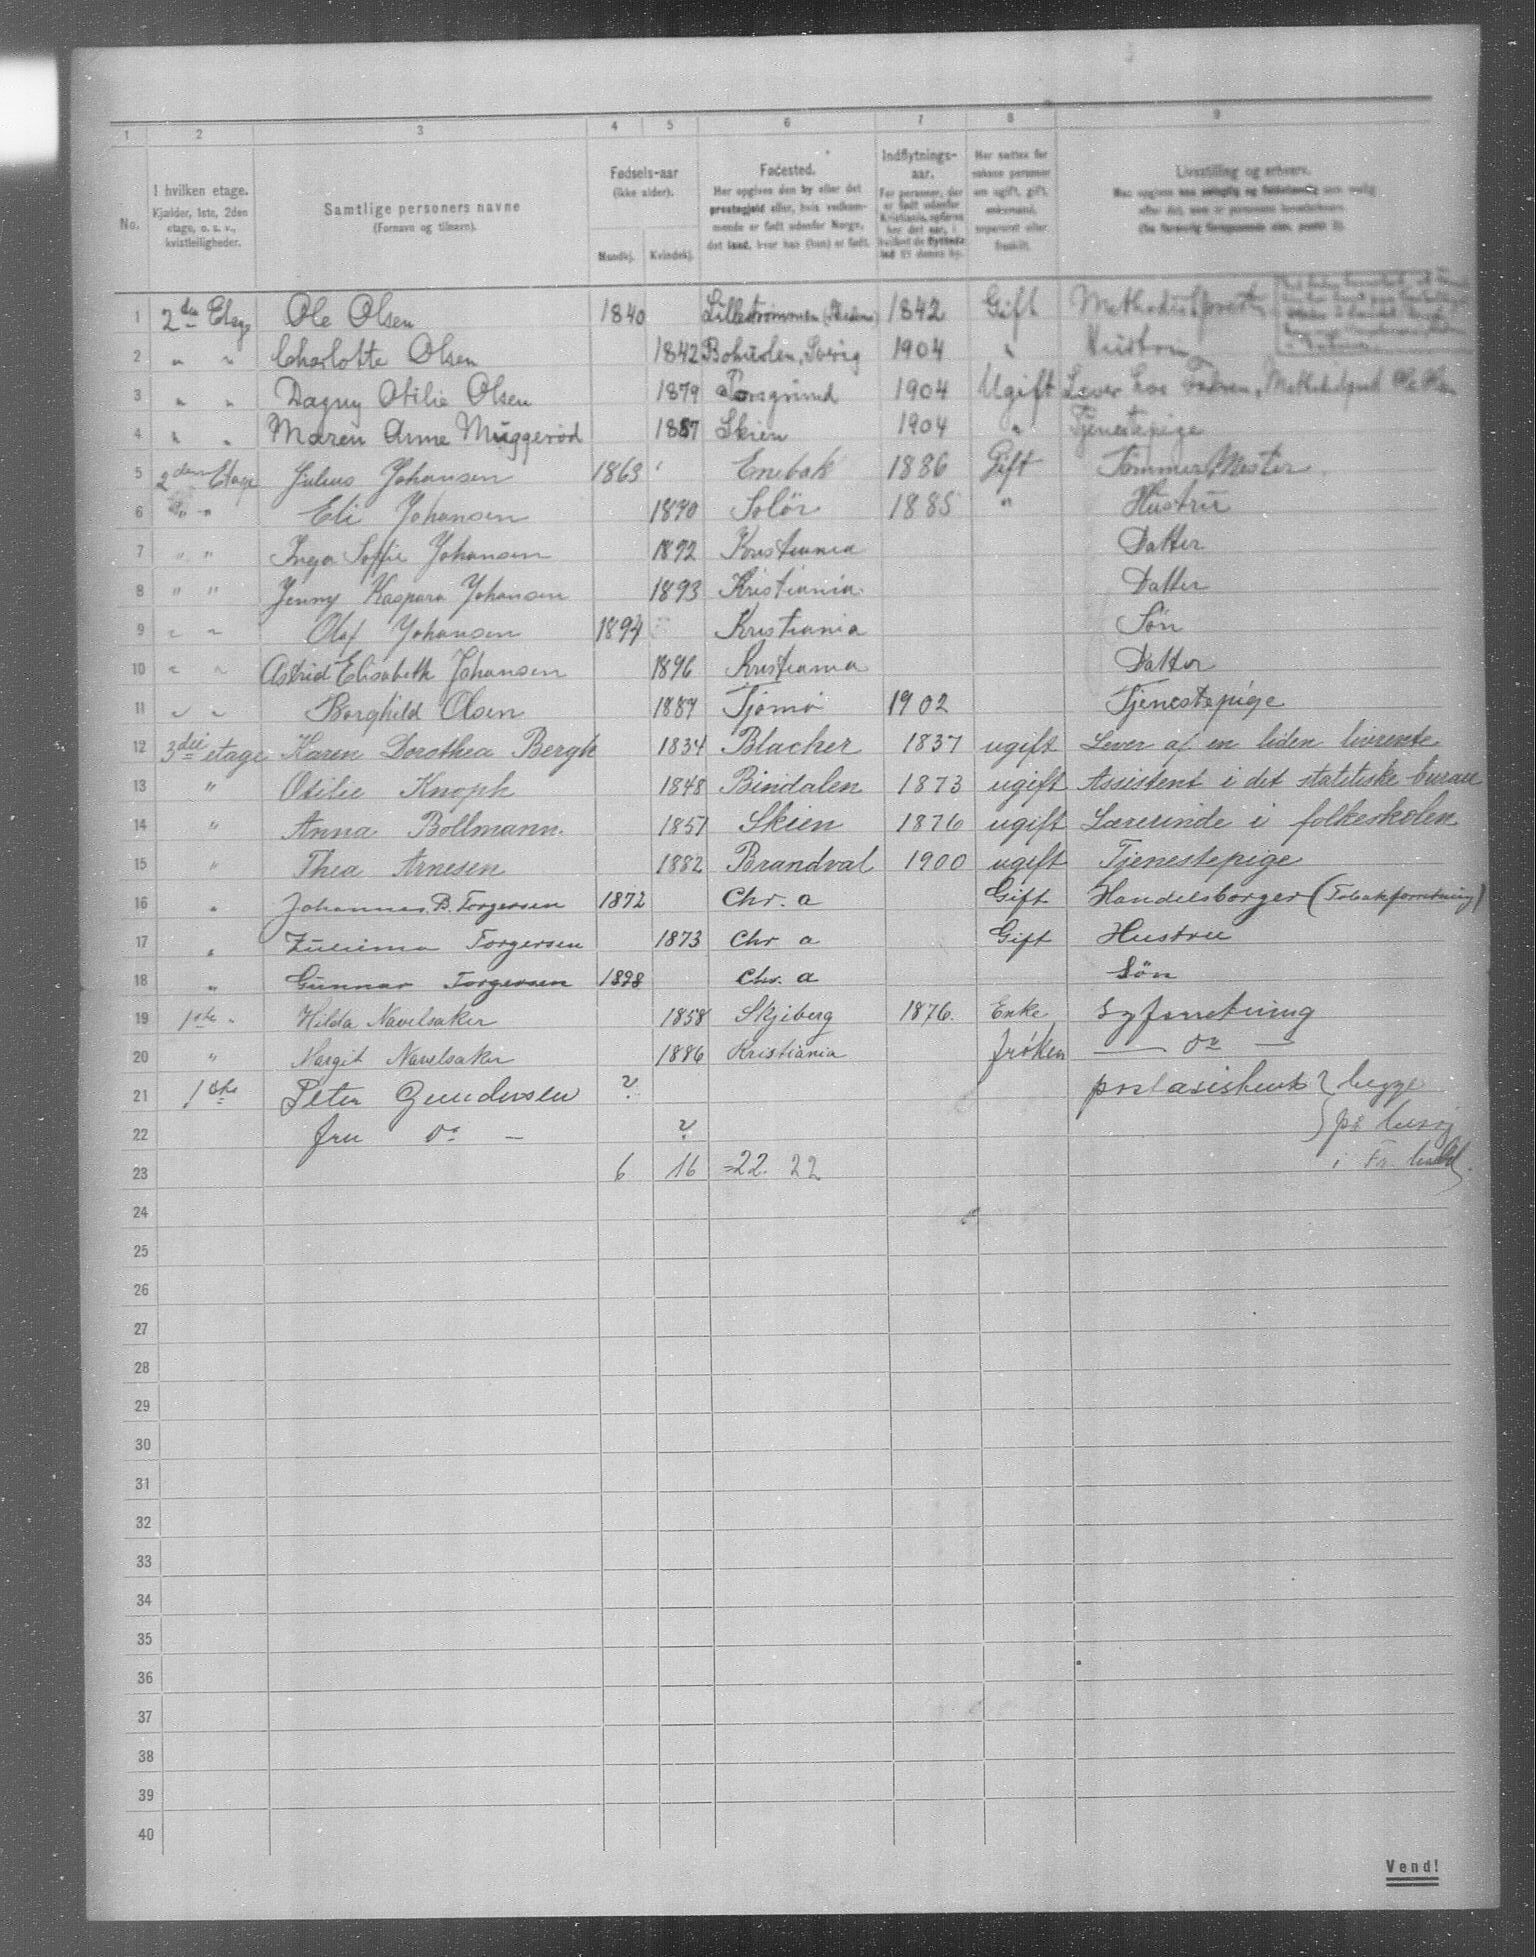 1 2 3 4 5 6 7 8 9
No. I hvilken etage. Kjælder, 1ste, 2den etage, o. s. v., kvistleiligheder. Samtlige personers navne (Fornavn og tilnavn). Fødsels-aar (ikke alder). Mandkj. Kvindekj. Fødested. Her opgives den by eller det præstegjeld eller, hvis vedkommende er født udenfor Norge, det land, hvor han (hun) er født. Indflytnings-aar. For personer, der er født udenfor Kristiania, opføres her det aar, i hvilket de flyttede ind til denne by. Her sættes for voksne personer om ugift, gift, enkemand, separeret eller fraskilt. Livsstilling og erhverv.
1 2den Etage Ole Olsen 1840 Lillestrømmen 1842 Gift Methodistpræst
2 " " Charlotte Olsen 1842 Bohuslen, Sverig 1904 " Hustru
3 " " Dagny Otilie Olsen 1879 Porsgrund 1904 Ugift Lever hos Faderen, Methodistpræst Ole Olsen
4 " " Maren Anne Muggerød 1887 Skien 1904 " Tjenestepige
5 2den Etage Julius Johansen 1863 Enebak 1886 Gift Tømmer Mester
6 " " Eli Johansen 1870 Solör 1885 " Hustru
7 " " Inga Soffie Johansen 1892 Kristiania Datter
8 " " Jenny Kaspara Johansen 1893 Kristiania Datter
9 " " Olaf Johansen 1894 Kristiania Søn
10 " " Astrid Elisabeth Johansen 1896 Kristiania Datter
11 " " Borghild Olsen 1887 Tjømø 1902 Tjenestepige
12 3die etage Karen Dorothea Bergh 1834 Blacher 1837 ugift Lever af en liden livrente
13 " Otilie Knoph 1848 Bindalen 1873 ugift Assistent i det statistiske bureau
14 " Anna Bollmann. 1857 Skien 1876 ugift Lærerinde i folkeskolen
15 " Thea Arnesen 1882 Brandval 1900 ugift Tjenestepige
16 " Johannes B. Torgersen 1872 Chr. a Gift Handelsborger (Tobakforretning)
17 " Zulima Torgersen 1873 Chr a Gift Hustru
18 " Gunnar Torgersen 1898 Chr. a Søn
19 1ste " Hilda Navelsaker 1858 Skjeberg 1876. Enke Syforretning
20 " Margit Navelsaker 1886 Kristiania frøken — do —
21 1ste Peter Gundersen ? postasistent } begge
22 fru do — ? } på besøg
23 6 16 =22. 22 i
24
25
26
27
28
29
30
31
32
33
34
35
36
37
38
39
40
Vend!